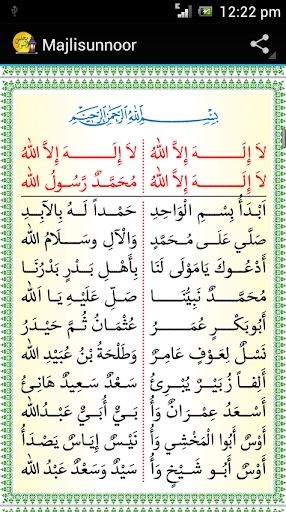 12:22 pm
Majlisunnoor
بِسْمِ اللهِ الرَّحْمٰنِ الرَّحِيْمِ
لاَ إِلَـــــهَ إِلاَّ اللهُ لاَ إِلَـــــهَ إِلاَّ اللهُ
لاَ إِلَـــــهَ إِلاَّ اللهُ مُحَمَّدٌ رَّسُولُ اللهُ
اَبْدَأُ بِسْمِ الْوَاحِدِ حَمْداً لَـهُ بِـالْآبِـدِ
صَلِّي عَلَـى مُحَمَّدٍ وَالْآلِ وَسَـلاَمُ الله
أَدْعُوكَ يَامَوْلَى لَنَا بِـأَهْـلِ بَـدْرٍ بَدْرُنَـا
مُحَمَّدٌ نَبِيُّنَـا صَلِّ عَلَيْهِ يَا اَلله
أَبُوبَكْرٍ عُمَـــرُ عُثْمَانُ ثُمَّ حَيْدَرُ
نَسْلٌ لِعَوْفٍ عَامِرٌ وَطَلْحَةُ بْنُ عُبَيْدِ الله
أَلِفاً زُبَيْرٌ يُبْرِئُ سَعْدٌ سَعِيدٌ هَانِئُ
أَسْعَدُ عِمْرَانٌ وَأُ بَيُّ أُبَيُّ عَبْدُالله
أَوْسٌ أَبُوا الْمَخْشِي وَأُ نَيْسٌ إِيَاسٌ يَصْدَأُ
أَوْسٌ أَبُو شَيْخٍ وَأُ سَيْدٌ وَسَعْدٌ عَبْدُ الله